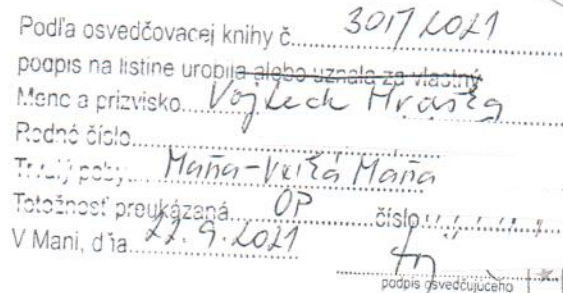 Podľa osvedčovacej knihy č. 301/2021
podpis na listine urobila alebo uznala za vlastný
Meno a prizvisko Vojtech Hraška
Rodné číslo
Trvalý pobyt Maňa-Veľká Maňa
Totožnosť preukázaná OP číslo
V Mani, dňa 22.9.2021
podpis osvedčujúceho